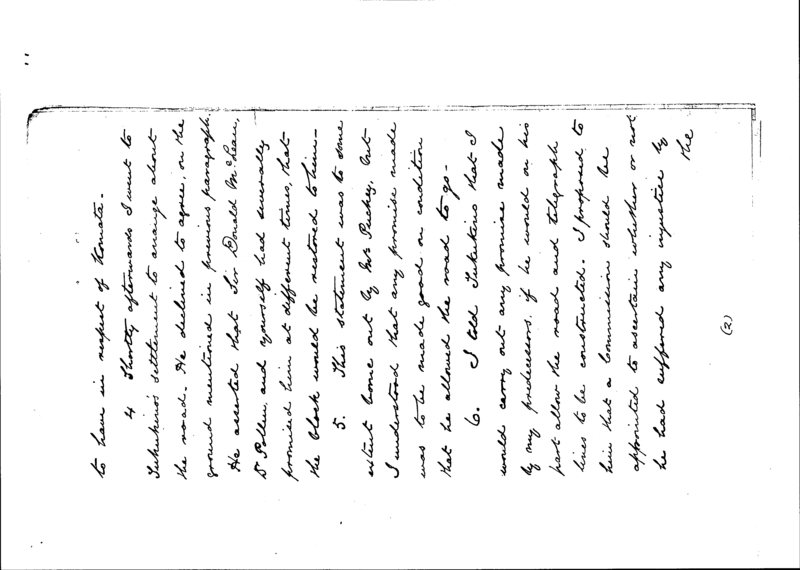 to have in respect of Komata.
4 Shortly afterwards I went to
Tukukino's settlement to arrange about
the road. He declined to agree, on the
ground mentioned in previous paragraph.
He asserted that Sir Donald McLean,
Dr Pollen, and yourself had severally
promised him at different times, that
the block would be restored to him-
5. This statement was to some
extent borne out by Mr Puckey, but
I understood that any promise made
was to be made good on condition
that he allowed the road to go-
6. I told Tukukino that I
would carry out any promise made
by my predecessors, if he would on his
part allow the road and telegraph
lines to be constructed. I proposed to
him that a Commission should be
appointed to ascertain whether or not
he had suffered any injustice by
the
(2)